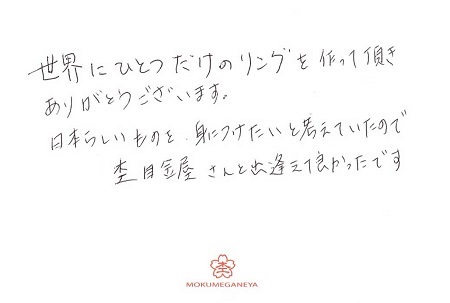 世界にひとつだけのリングを作って頂き
ありがとうございます。
日本らしいものを身につけたいと考えていたので
杢目金屋さんと出逢えて良かったです
杢
MOKUMEGANEYA